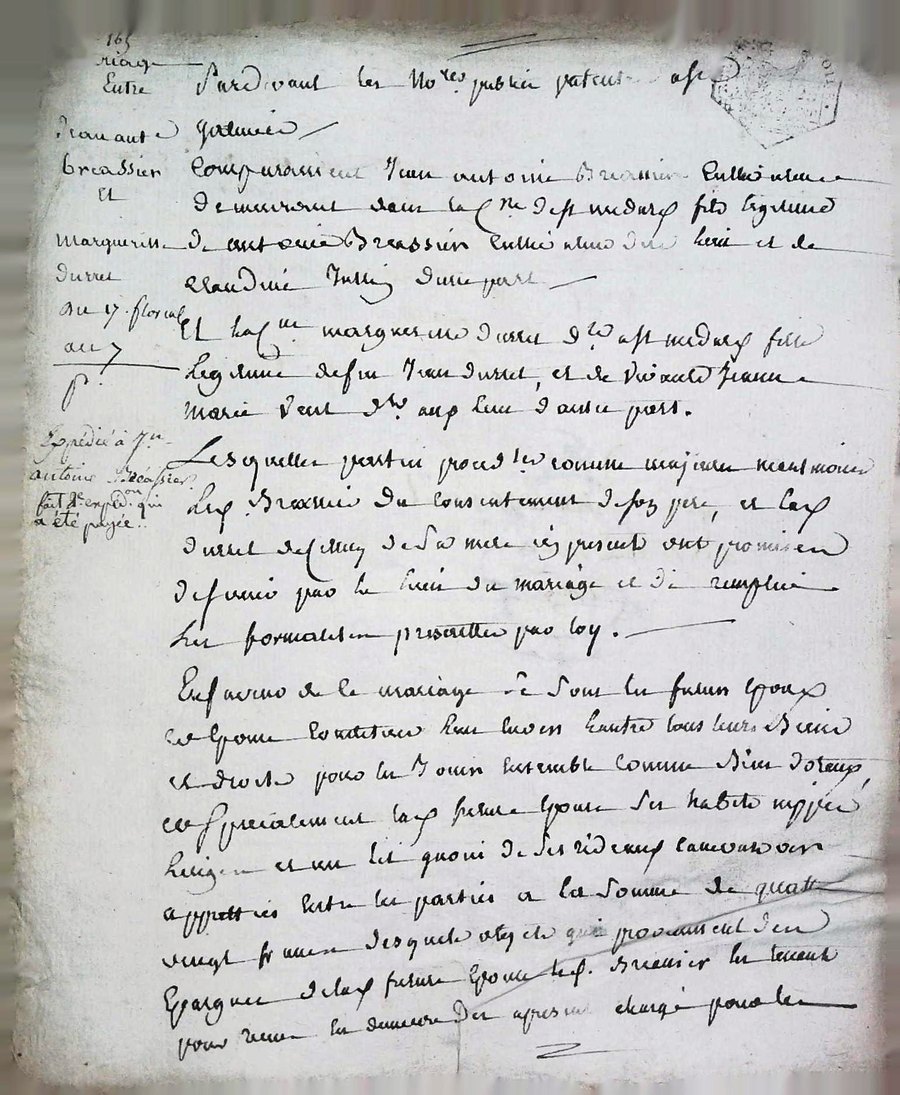 165
riage
Entre
Jean ante
breassier
Et
Margueritte
durret
du 17. floreal
an 7
Expédié à Jn
antoine Bréassier
fait 2e. expéd.on qui
a été payée..
Pardevant les No.res public patenté
Comparaissent Jean antoine Breassier Cultivateur
demeurant dans la Cne de st medard fils legitime
de antoine Breassier Cultivateur du lieu et de
Claudine d'une part
Et la Cne margueritte durret dte a st medard fille
Legitime de feu Jean durret, et de vivante Jeanne
Marie dte aux lieu d'autre part.
Lesquelles parties proced.tes comme majeurs meme
Led. Breassier du consentement de son pere, et lad.
durret de celluy de sa mere icy present ont promis
de s'unir par le lien du mariage et de remplir
les formalites prescrittes par loy.
En faveur de le mariage se sont les futurs Epoux
et Epouse Constitués l'un envers l'autre tous leurs Biens
et droits pour les Jouir Ensemble comme Biens dotaux,
et Specialement lad. future Epouse ses habits nippes
Linges et un lit garni de ses rideaux
apprétiés Entre les parties a la somme de quatre
vingt francs desquels objets qui proviennent des
Epargnes de lad. future Epoux led. Breassier les tenant
pour recus en demeure des apresent chargé pour les